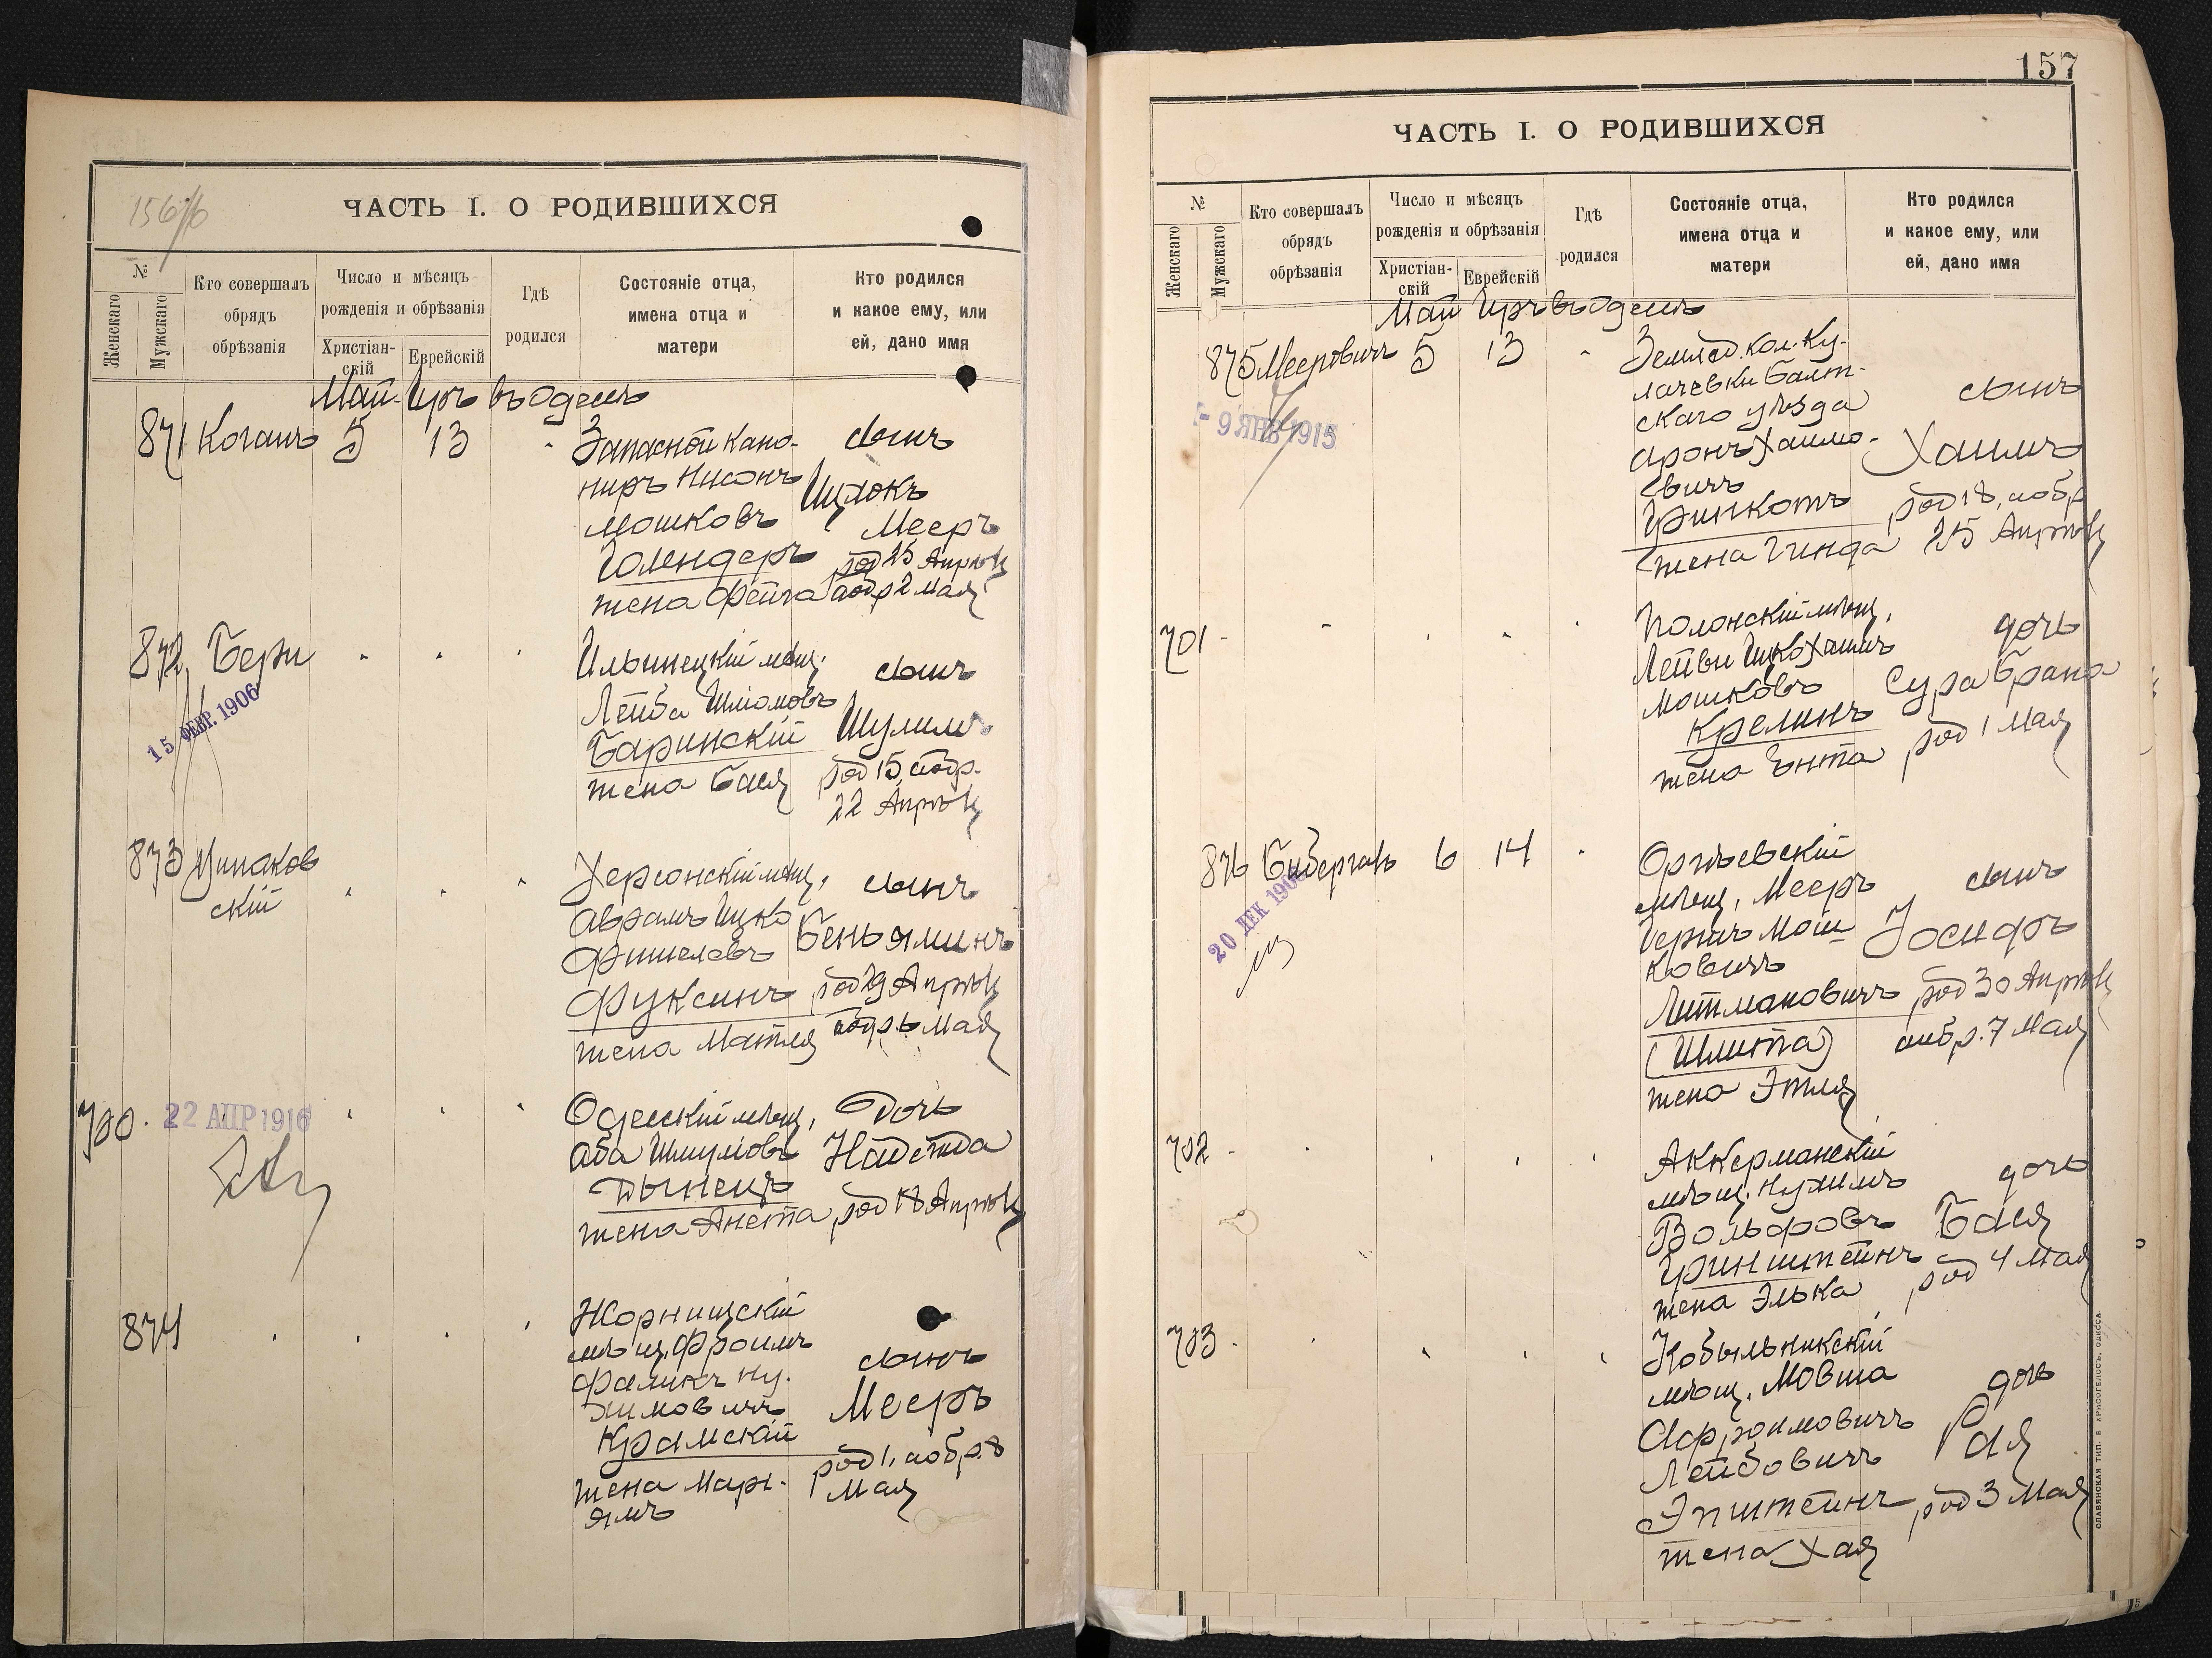 156/б
ЧАСТЬ I. О РОДИВШИХСЯ
№
Женскаго
Мужскаго
Кто совершалъ
обрядъ
обрѣзанія
Число и мѣсяцъ
рожденія и обрѣзанія
Христіан-
скій
Еврейскій
Гдѣ
родился
Состояніе отца,
имена отца и
матери
Кто родился
и какое ему, или
ей, дано имя
Май Іиръ въ Одессѣ
871 Коганъ 5 13
Запасной кано-
ниръ Нисонъ
Мошковъ
Голендеръ
жена Фейга
сынъ
Ицхокъ
Мееръ
род 25 Апрѣля
и обр 2 Мая
872 Бери
15 ФЕВР. 1906
Ильинецкій мѣщ.
Лейба Шліомовъ
Баринскій
жена Бася
сынъ
Шулимъ
род 15, и обр.
22 Апрѣля
873
скій
Херсонскій мѣщ.
Аврамъ Ицко
Фишелевъ
Фуксинъ
жена Матля
сынъ
Беньяминъ
род 29 Апрѣля
и обр 6 Мая
700
22 АПР 1916
Одесскій мѣщ.
Аба Шмулювъ
Дынецъ
жена Анета
Дочь
Надежда
род 18 Апрѣля
874
Жорнищскій
мѣщ. Фроимъ
Фаликъ Ну-
химовичъ
Крамскій
жена Марі-
ямъ
сынъ
Мееръ
род 1, и обр. 8
Мая
157
ЧАСТЬ I. О РОДИВШИХСЯ
№
Женскаго
Мужскаго
Кто совершалъ
обрядъ
обрѣзанія
Число и мѣсяцъ
рожденія и обрѣзанія
Христіан-
скій
Еврейскій
Гдѣ
родился
Состояніе отца,
имена отца и
матери
Кто родился
и какое ему, или
ей, дано имя
Май Іиръ въ Одессѣ
875 Мееровичъ 5 13
- 9 ЯНВ 1915
Землед. кол. Ку-
лачевки Балт-
скаго уѣзда
Аронъ Хаимо-
вичъ
Гринкотъ
жена Гинда
сынъ
Хаимъ
род 18, и обр
25 Апрѣля
701
Полонскій мѣщ.
Лейви Ицко Хаимъ
Мошковъ
Крелинъ
жена Ента
дочь
Сура Брана
род 1 Мая
876 6 14
20 ДЕК 190
Оргѣевскій
мѣщ. Мееръ
Гершъ Мош-
ковичъ
Литмановичъ
(Шлита)
жена Этля
сынъ
Іосифъ
род 30 Апрѣля
и обр. 7 Мая
702
Аккерманскій
мѣщ. Нухимъ
Вольфовъ
Гринштейнъ
жена Элька
дочь
Бася
род 4 Мая
703
Кобыльникскій
мѣщ. Мовша
Афроимовичъ
Лейбовичъ
Эпштейнъ
жена Хая
дочь
Рая
род 3 Мая
СЛАВЯНСКАЯ ТИП. Е. ХРИСОГЕЛОСЪ, ОДЕССА